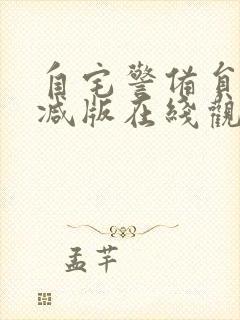 自宅警備員
减版在綫觀
孟芊